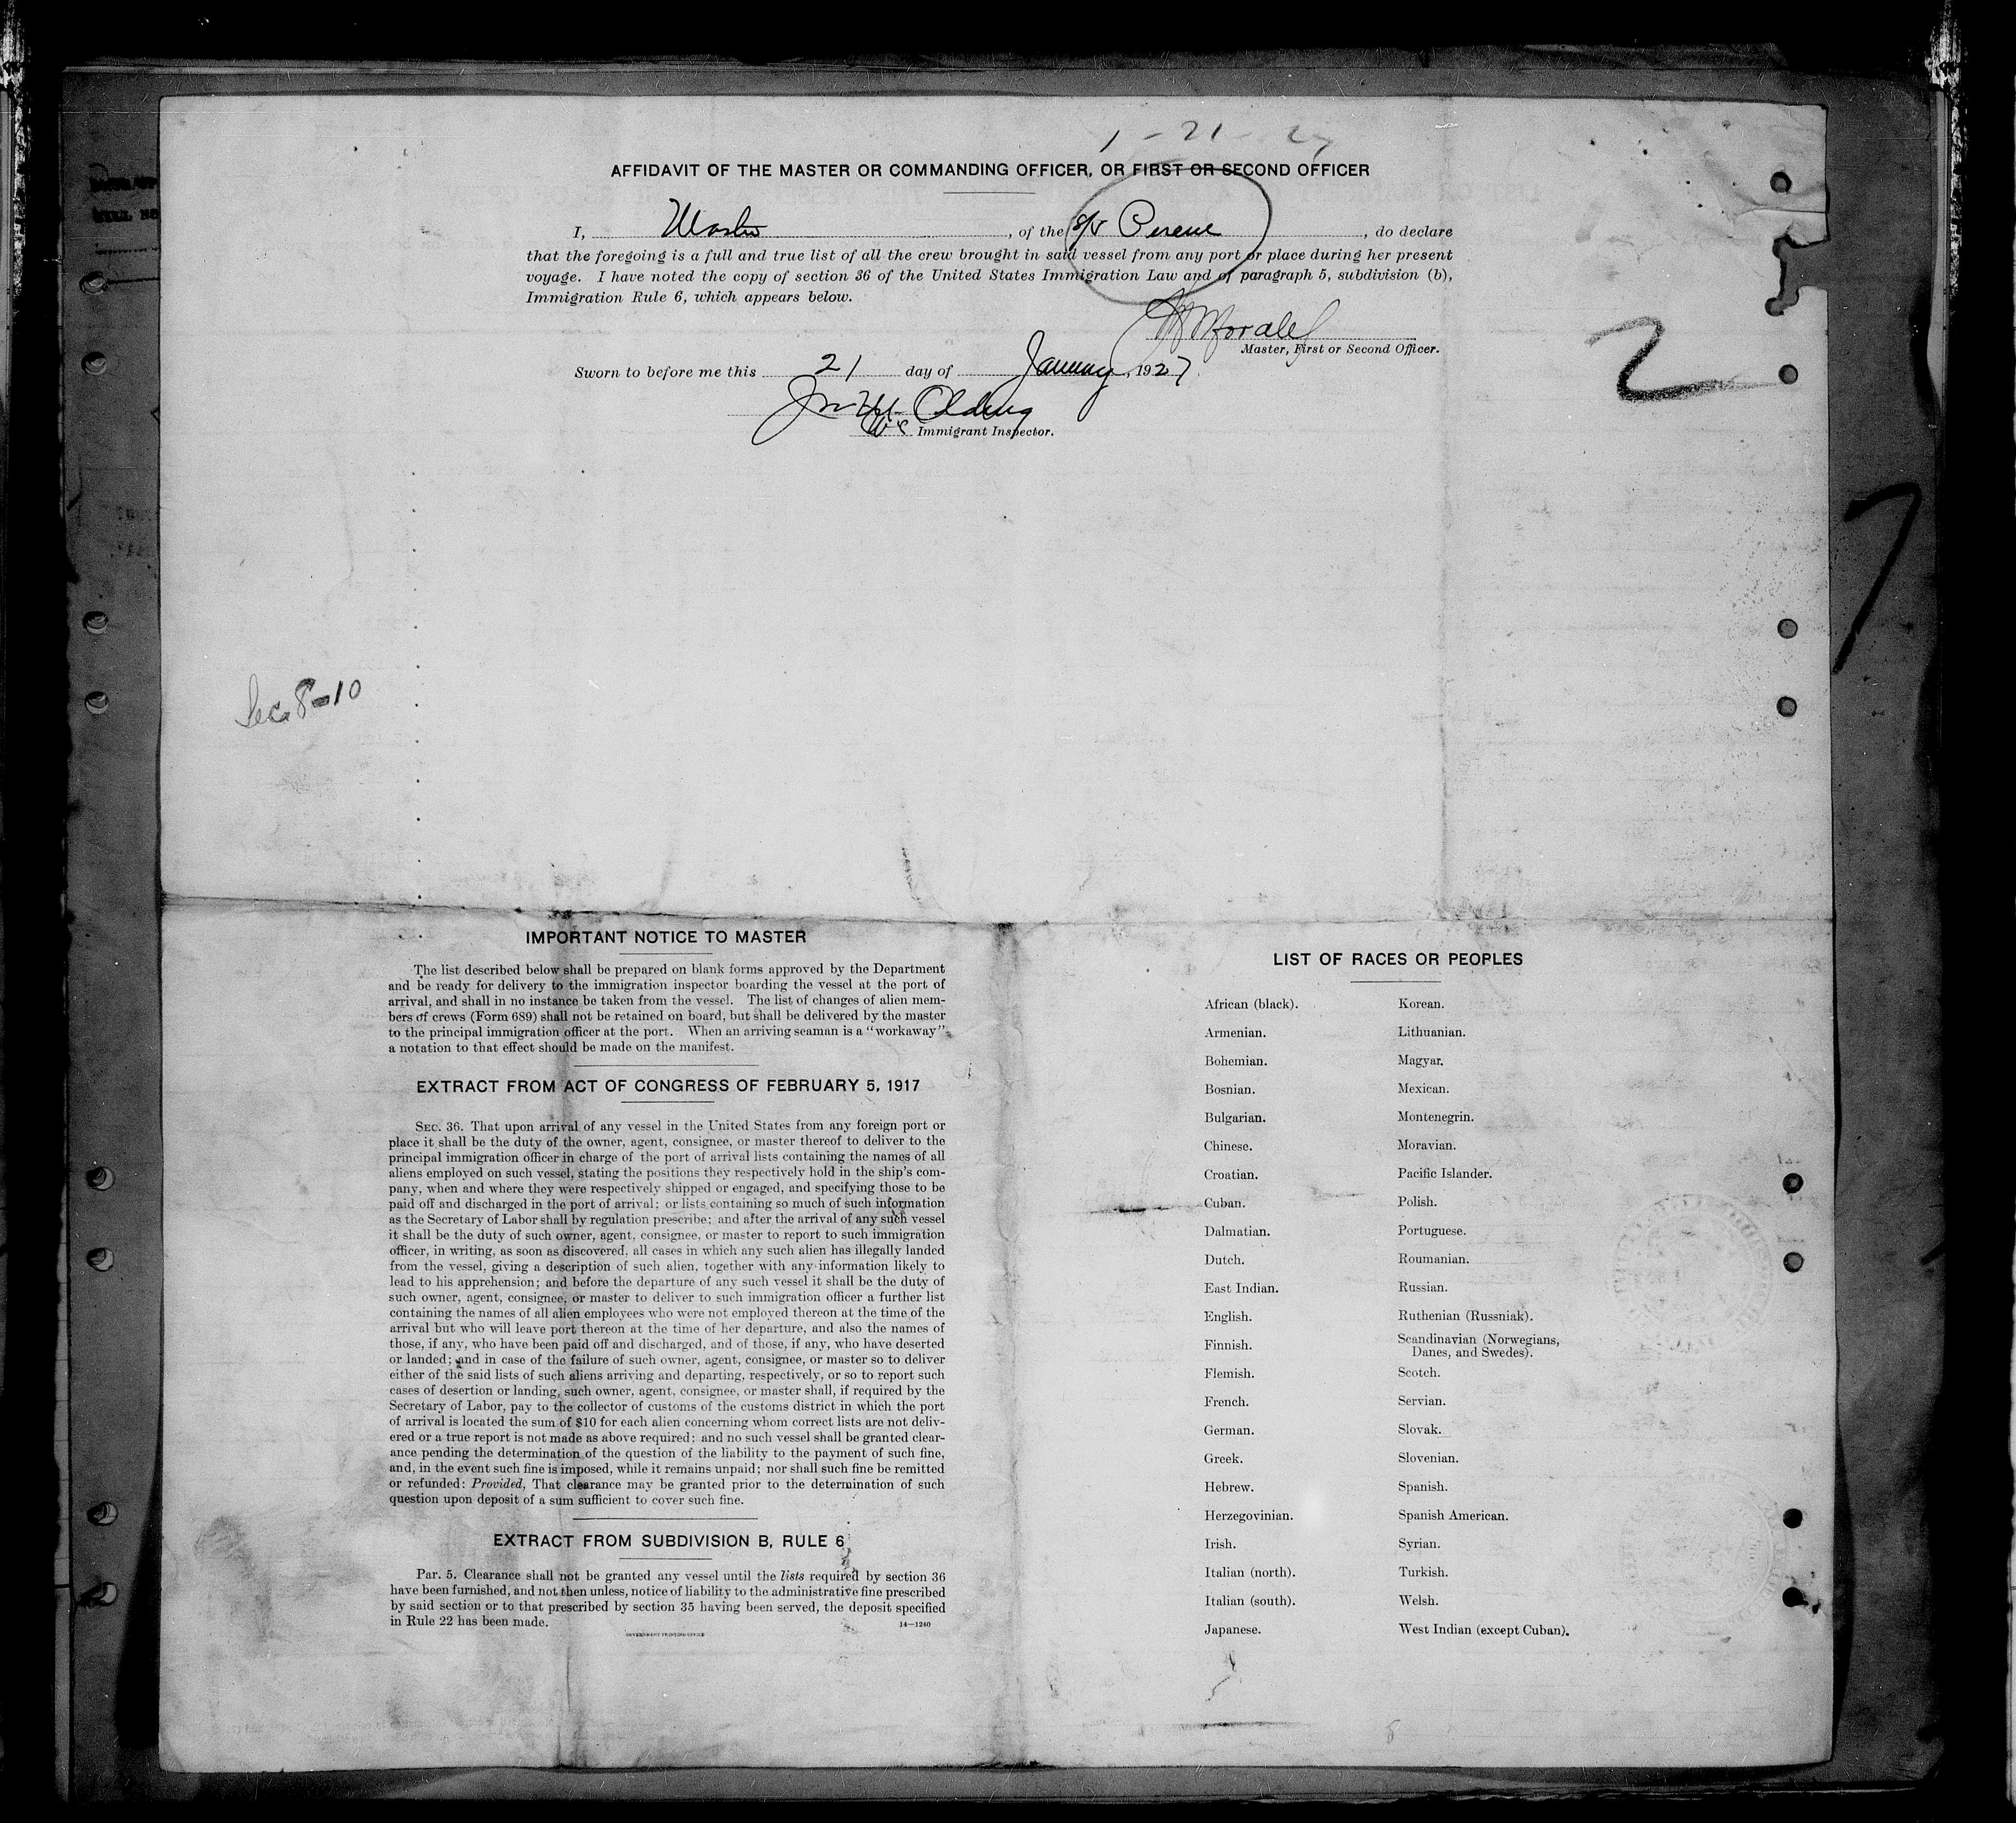 1 - 21 - 27
AFFIDAVIT OF THE MASTER OR COMMANDING OFFICER, OR FIRST OR SECOND OFFICER
I, Master, of the , do declare
that the foregoing is a full and true list of all the crew brought in said vessel from any port or place during her present
voyage. I have noted the copy of section 36 of the United States Immigration Law and of paragraph 5, subdivision (b),
Immigration Rule 6, which appears below.
Master, First or Second Officer.
Sworn to before me this 21 day of January, 1927
Immigrant Inspector.
2
7
Sec. 8-10
IMPORTANT NOTICE TO MASTER
The list described below shall be prepared on blank forms approved by the Department
and be ready for delivery to the immigration inspector boarding the vessel at the port of
arrival, and shall in no instance be taken from the vessel. The list of changes of alien mem-
bers of crews (Form 689) shall not be retained on board, but shall be delivered by the master
to the principal immigration officer at the port. When an arriving seaman is a "workaway"
a notation to that effect should be made on the manifest.
EXTRACT FROM ACT OF CONGRESS OF FEBRUARY 5, 1917
SEC. 36. That upon arrival of any vessel in the United States from any foreign port or
place it shall be the duty of the owner, agent, consignee, or master thereof to deliver to the
principal immigration officer in charge of the port of arrival lists containing the names of all
aliens employed on such vessel, stating the positions they respectively hold in the ship's com-
pany, when and where they were respectively shipped or engaged, and specifying those to be
paid off and discharged in the port of arrival; or lists containing so much of such information
as the Secretary of Labor shall by regulation prescribe; and after the arrival of any such vessel
it shall be the duty of such owner, agent, consignee, or master to report to such immigration
officer, in writing, as soon as discovered, all cases in which any such alien has illegally landed
from the vessel, giving a description of such alien, together with any information likely to
lead to his apprehension; and before the departure of any such vessel it shall be the duty of
such owner, agent, consignee, or master to deliver to such immigration officer a further list
containing the names of all alien employees who were not employed thereon at the time of the
arrival but who will leave port thereon at the time of her departure, and also the names of
those, if any, who have been paid off and discharged, and of those, if any, who have deserted
or landed; and in case of the failure of such owner, agent, consignee, or master so to deliver
either of the said lists of such aliens arriving and departing, respectively, or so to report such
cases of desertion or landing, such owner, agent, consignee, or master shall, if required by the
Secretary of Labor, pay to the collector of customs of the customs district in which the port
of arrival is located the sum of $10 for each alien concerning whom correct lists are not deliv-
ered or a true report is not made as above required; and no such vessel shall be granted clear-
ance pending the determination of the question of the liability to the payment of such fine,
and, in the event such fine is imposed, while it remains unpaid; nor shall such fine be remitted
or refunded: Provided, That clearance may be granted prior to the determination of such
question upon deposit of a sum sufficient to cover such fine.
EXTRACT FROM SUBDIVISION B, RULE 6
Par. 5. Clearance shall not be granted any vessel until the lists required by section 36
have been furnished, and not then unless, notice of liability to the administrative fine prescribed
by said section or to that prescribed by section 35 having been served, the deposit specified
in Rule 22 has been made.
14—1240
GOVERNMENT PRINTING OFFICE
LIST OF RACES OR PEOPLES
African (black). Korean.
Armenian. Lithuanian.
Bohemian. Magyar.
Bosnian. Mexican.
Bulgarian. Montenegrin.
Chinese. Moravian.
Croatian. Pacific Islander.
Cuban. Polish.
Dalmatian. Portuguese.
Dutch. Roumanian.
East Indian. Russian.
English. Ruthenian (Russniak).
Finnish. Scandinavian (Norwegians,
Danes, and Swedes).
Flemish. Scotch.
French. Servian.
German. Slovak.
Greek. Slovenian.
Hebrew. Spanish.
Herzegovinian. Spanish American.
Irish. Syrian.
Italian (north). Turkish.
Italian (south). Welsh.
Japanese. West Indian (except Cuban).